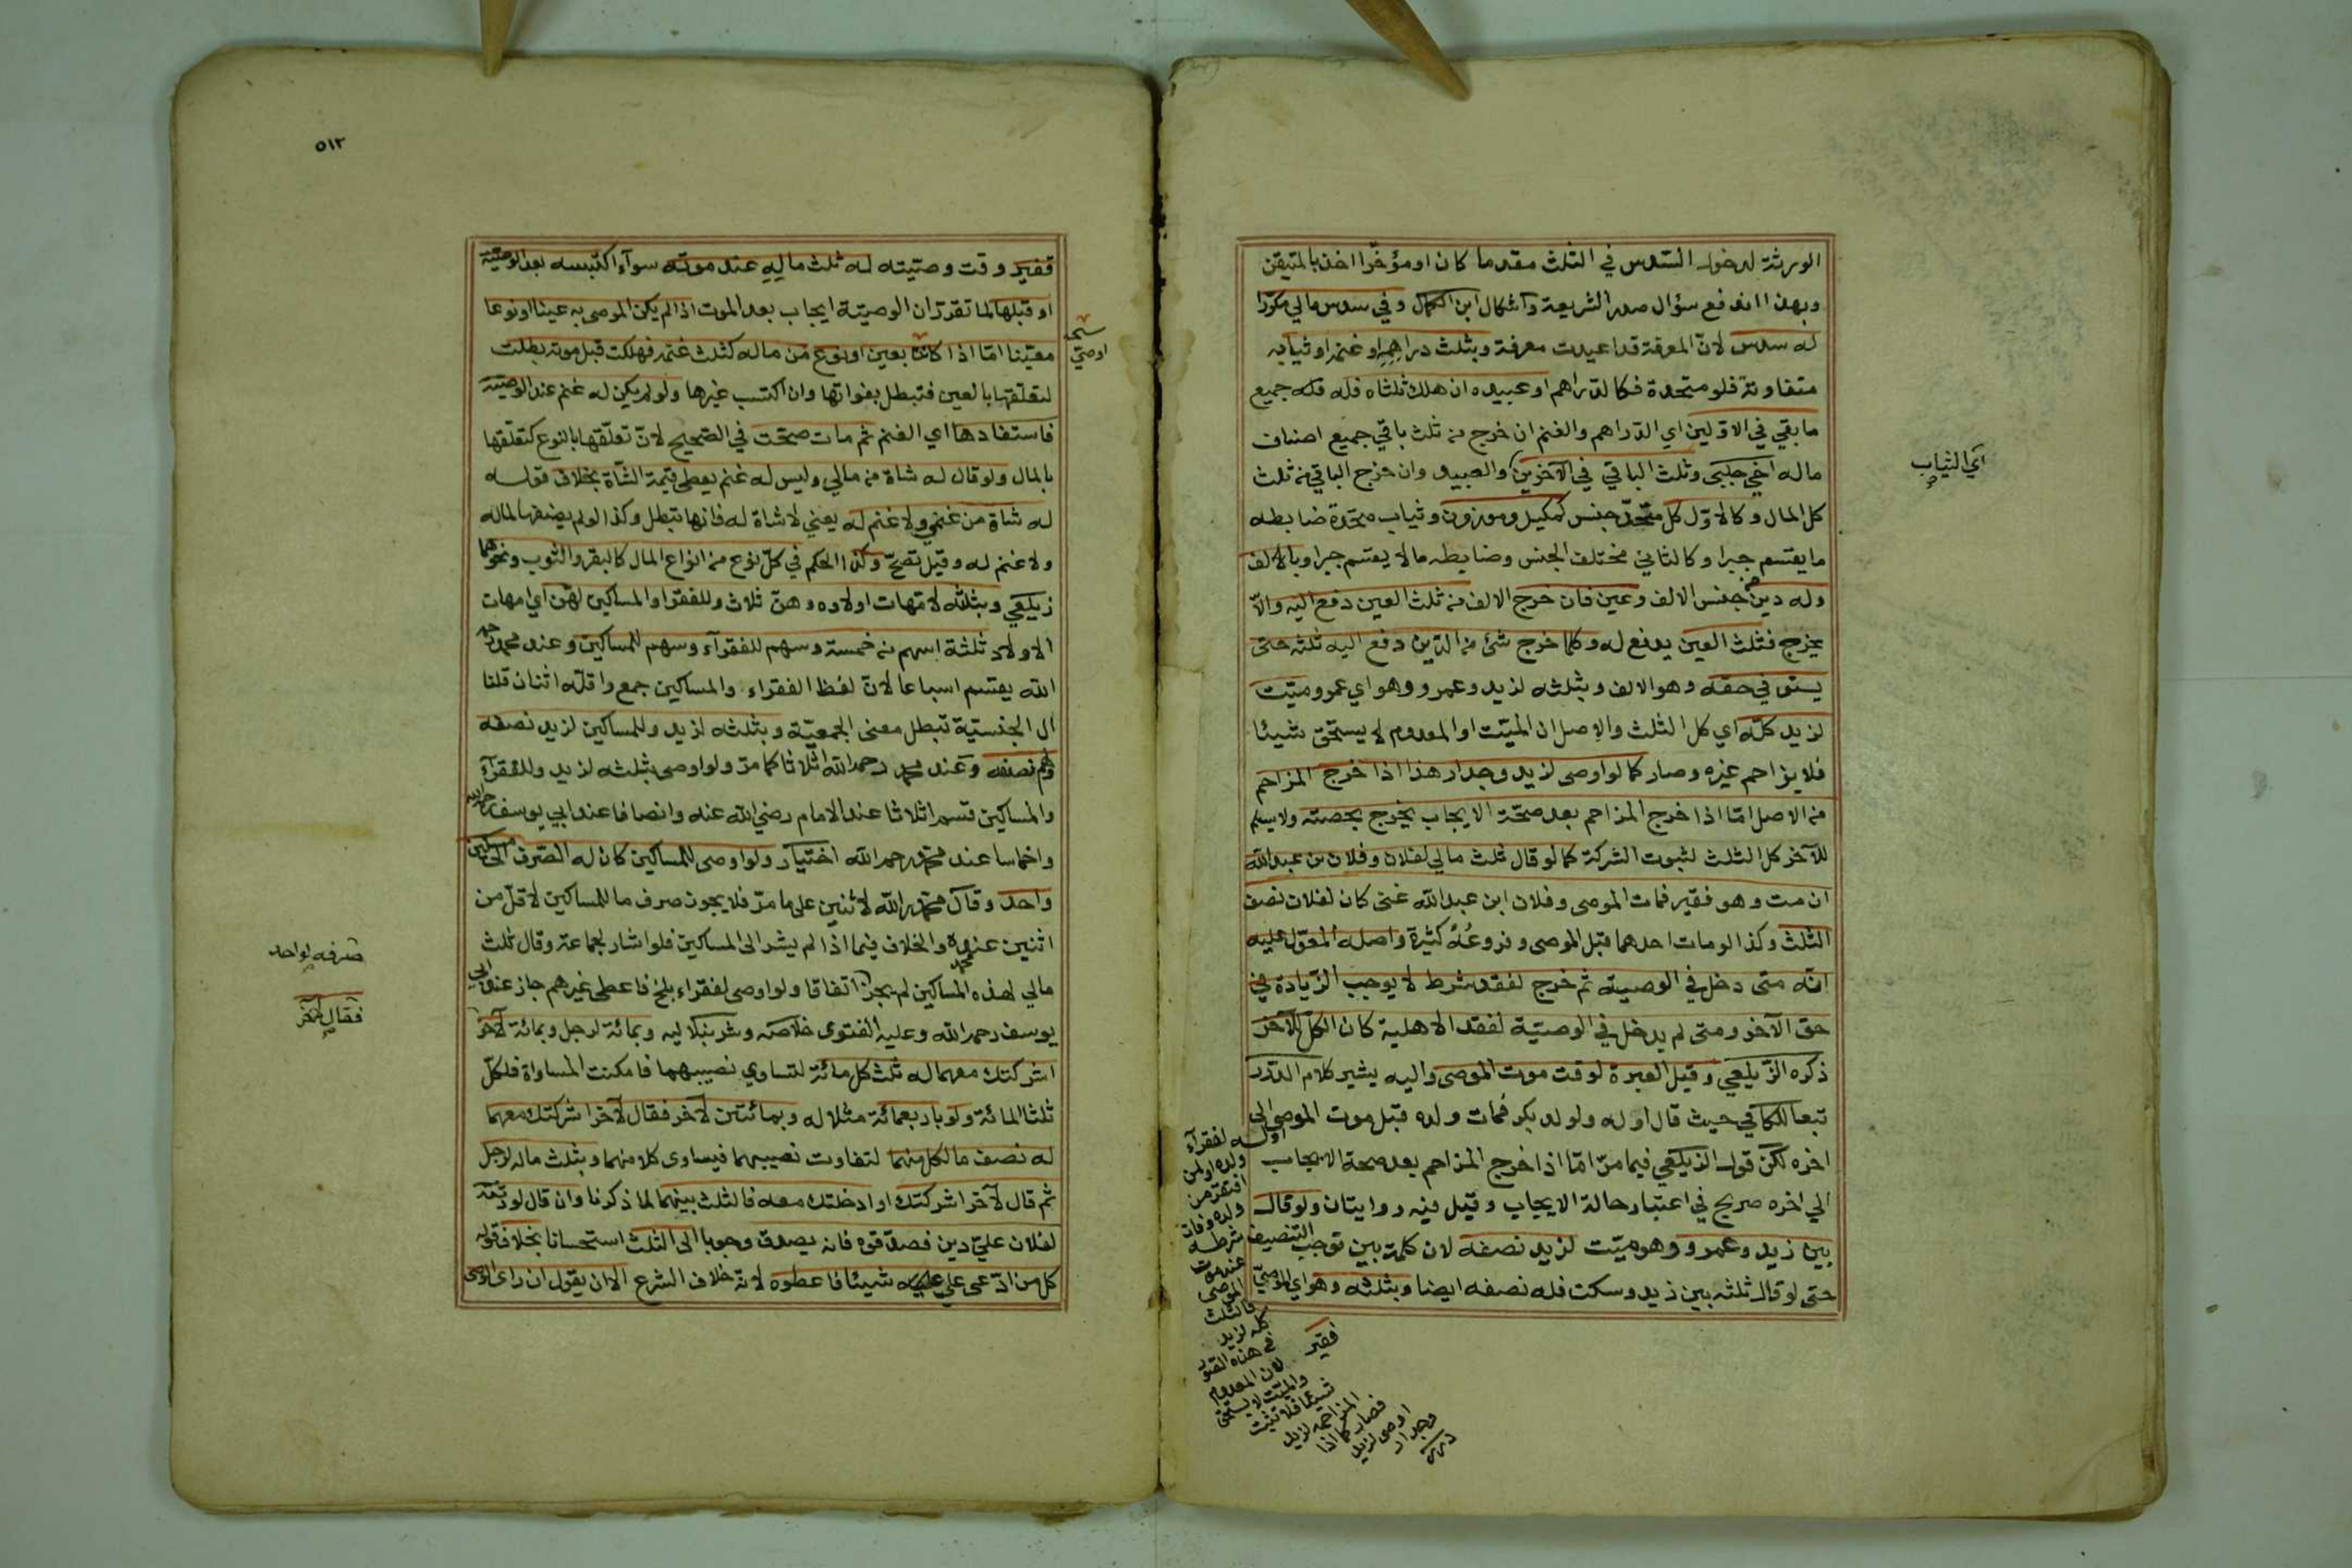 الورثة لدخول السدس في الثلث مقدما كان او مؤخرا اخذا بالمتيقن
وبهذا اندفع سؤال صدر الشريعة واشكال ابن الكمال وفي سدس مالي مكررا
له سدس لان المعرفة قد اعيدت معرفة وبثلث دراهمه او غنمه او ثيابه
متفاوتة فلو متحدة فكالدراهم او عبيده ان هلك ثلثاه فله فله جميع
ما بقي في الاولين اي الدراهم والغنم ان خرج من ثلث باقي جميع اصناف
ماله اخي جلبى وثلث الباقي في الآخرين والعبيد وان خرج الباقي من ثلث
كل المال وكالاول كل متحد جنس كمكيل وموزون وثياب متحدة ضابطه
ما يقسم جبرا وكالثاني مختلف الجنس وضابطه ما لا يقسم جبرا وبالالف
وله دين من جنس الالف وعين فان خرج الالف من ثلث العين دفع اليه والا
يخرج فثلث العين يدفع له وكلما خرج شئ من الدين دفع اليه ثلثه حتى
يستوفي حقه وهو الالف وبثلثه لزيد وعمرو وهو اي عمرو ميت
لزيد كله اي كل الثلث والاصل ان الميت او المعدوم لا يستحق شيئا
فلا يزاحم غيره وصار كما لو اوصى لزيد وجدار هذا اذا خرج المزاحم
من الاصل اما اذا خرج المزاحم بعد صحة الايجاب يخرج بحصته ولا يسلم
للآخر كل الثلث لثبوت الشركة كما لو قال ثلث مالي لفلان وفلان بن عبد الله
ان مت وهو فقير فمات الموصى وفلان ابن عبد الله غنى كان لفلان نصف
الثلث وكذا لو مات احدهما قبل الموصى وفروعه كثيرة واصله المعول عليه
انه متى دخل في الوصية ثم خرج لفقد شرط لا يوجب الزيادة في
حق الآخر ومتى لم يدخل في الوصية لفقد الاهلية كان الكل للآخر
ذكره الزيلعي وقيل العبرة لوقت موت الموصى واليه يشير كلام الدرر
تبعا للكافي حيث قال او له ولولد بكر فمات ولده قبل موت الموصى الى
اخره لكن قول الزيلعي فيما مر اما اذا خرج المزاحم بعد صحة الايجاب
الي اخره صريح في اعتبار حالة الايجاب وقيل فيه روايتان ولو قال
بين زيد وعمرو وهو ميت لزيد نصفه لان كلمة بين توجب التنصيف
حتى لو قال ثلثه بين زيد وسكت فله نصفه ايضا وبثلثه وهو اي الموصي
فقير
اي الثياب
او له لفقرآء
ولده او لمن
افتقر من
ولده وفات
شرطه
عند موت
الموصى
فالثلث
كله لزيد
في هذه الصور
لان المعدوم
والميت لا يستحق
شيئا فلا تثبت
المزاحمة لزيد
فصار كما اذا
اوصى لزيد
وجدار
درر
٥١٣
فقير وقت وصيته له ثلث ماليه عند موته سوآء اكتسبه بعد الوصية
او قبلها لما تقرر ان الوصية ايجاب بعد الموت اذا لم يكن الموصى به عينا او نوعا
معينا اما اذا كانت بعين او نوع من ماله كثلث غنمه فهلكت قبل موته بطلت
لتعلقها بالعين فتبطل بفواتها وان اكتسب غيرها ولو لم يكن له غنم عند الوصية
فاستفادها اي الغنم ثم مات صحت في الصحيح لان تعلقها بالنوع كتعلقها
بالمال ولو قال له شاة من مالي وليس له غنم يعطى قيمة الشاة بخلاف قوله
له شاة من غنمي ولا غنم له يعني لا شاة له فانها تبطل وكذا لو لم يضفها لماله
ولا غنم له وقيل تصح وكذا الحكم في كل نوع من انواع المال كالبقر والثوب ونحوهما
زيلعي وبثلثه لامهات اولاده وهن ثلاث وللفقرا والمساكين لهن اي امهات
الاولاد ثلثة اسهم من خمسة وسهم للفقرآء وسهم للمساكين وعند محمد رحمه
الله يقسم اسباعا لان لفظ الفقراء والمساكين جمع واقله اثنان قلنا
ال الجنسية تبطل معنى الجمعية وبثلثه لزيد وللمساكين لزيد نصفه
ولهم نصفه وعند محمد رحمه الله اثلاثا كما مر ولو اوصى بثلثه لزيد وللفقرآء
والمساكين قسم اثلاثا عند الامام رضي الله عنه وانصافا عند ابي يوسف رحمه الله
واخماسا عند محمد رحمه الله اختيار ولو اوصى للمساكين كان له الصرف الى مسكين
واحد وقال محمد رحمه الله لاثنين على ما مر فلا يجوز صرف ما للمساكين لاقل من
اثنين عنده والخلاف فيما اذا لم يشر الى المساكين فلو اشار لجماعة وقال ثلث
مالي لهذه المساكين لم يجز اتفاقا ولو اوصى لفقراء بلخ فاعطى غيرهم جاز عند ابي
يوسف رحمه الله وعليه الفتوى خلاصه وشرنبلاليه وبمائة لرجل وبمائة لآخر
اشركتك معهما له ثلث كل مائة لتساوي نصيبهما فامكنت المساواة فلكل
ثلثا المائة ولو باربعمائة مثلا له وبمائتين لآخر فقال لآخر اشركتك معهما
له نصف ما لكل منهما لتفاوت نصيبهما فيساوى كلا منهما وبثلث ماله لرجل
ثم قال لآخر اشركتك او ادخلتك معه فالثلث بينهما لما ذكرنا وان قال لورثته
لفلان علي دين فصدقوه فانه يصدق وجوبا الى الثلث استحسانا بخلاف قوله
كل من ادعى علي شيئا فاعطوه لانه خلاف الشرع الا ان يقول ان راى الوصى
نسخه
اوصى
صرفه لواحد
فقال لآخر